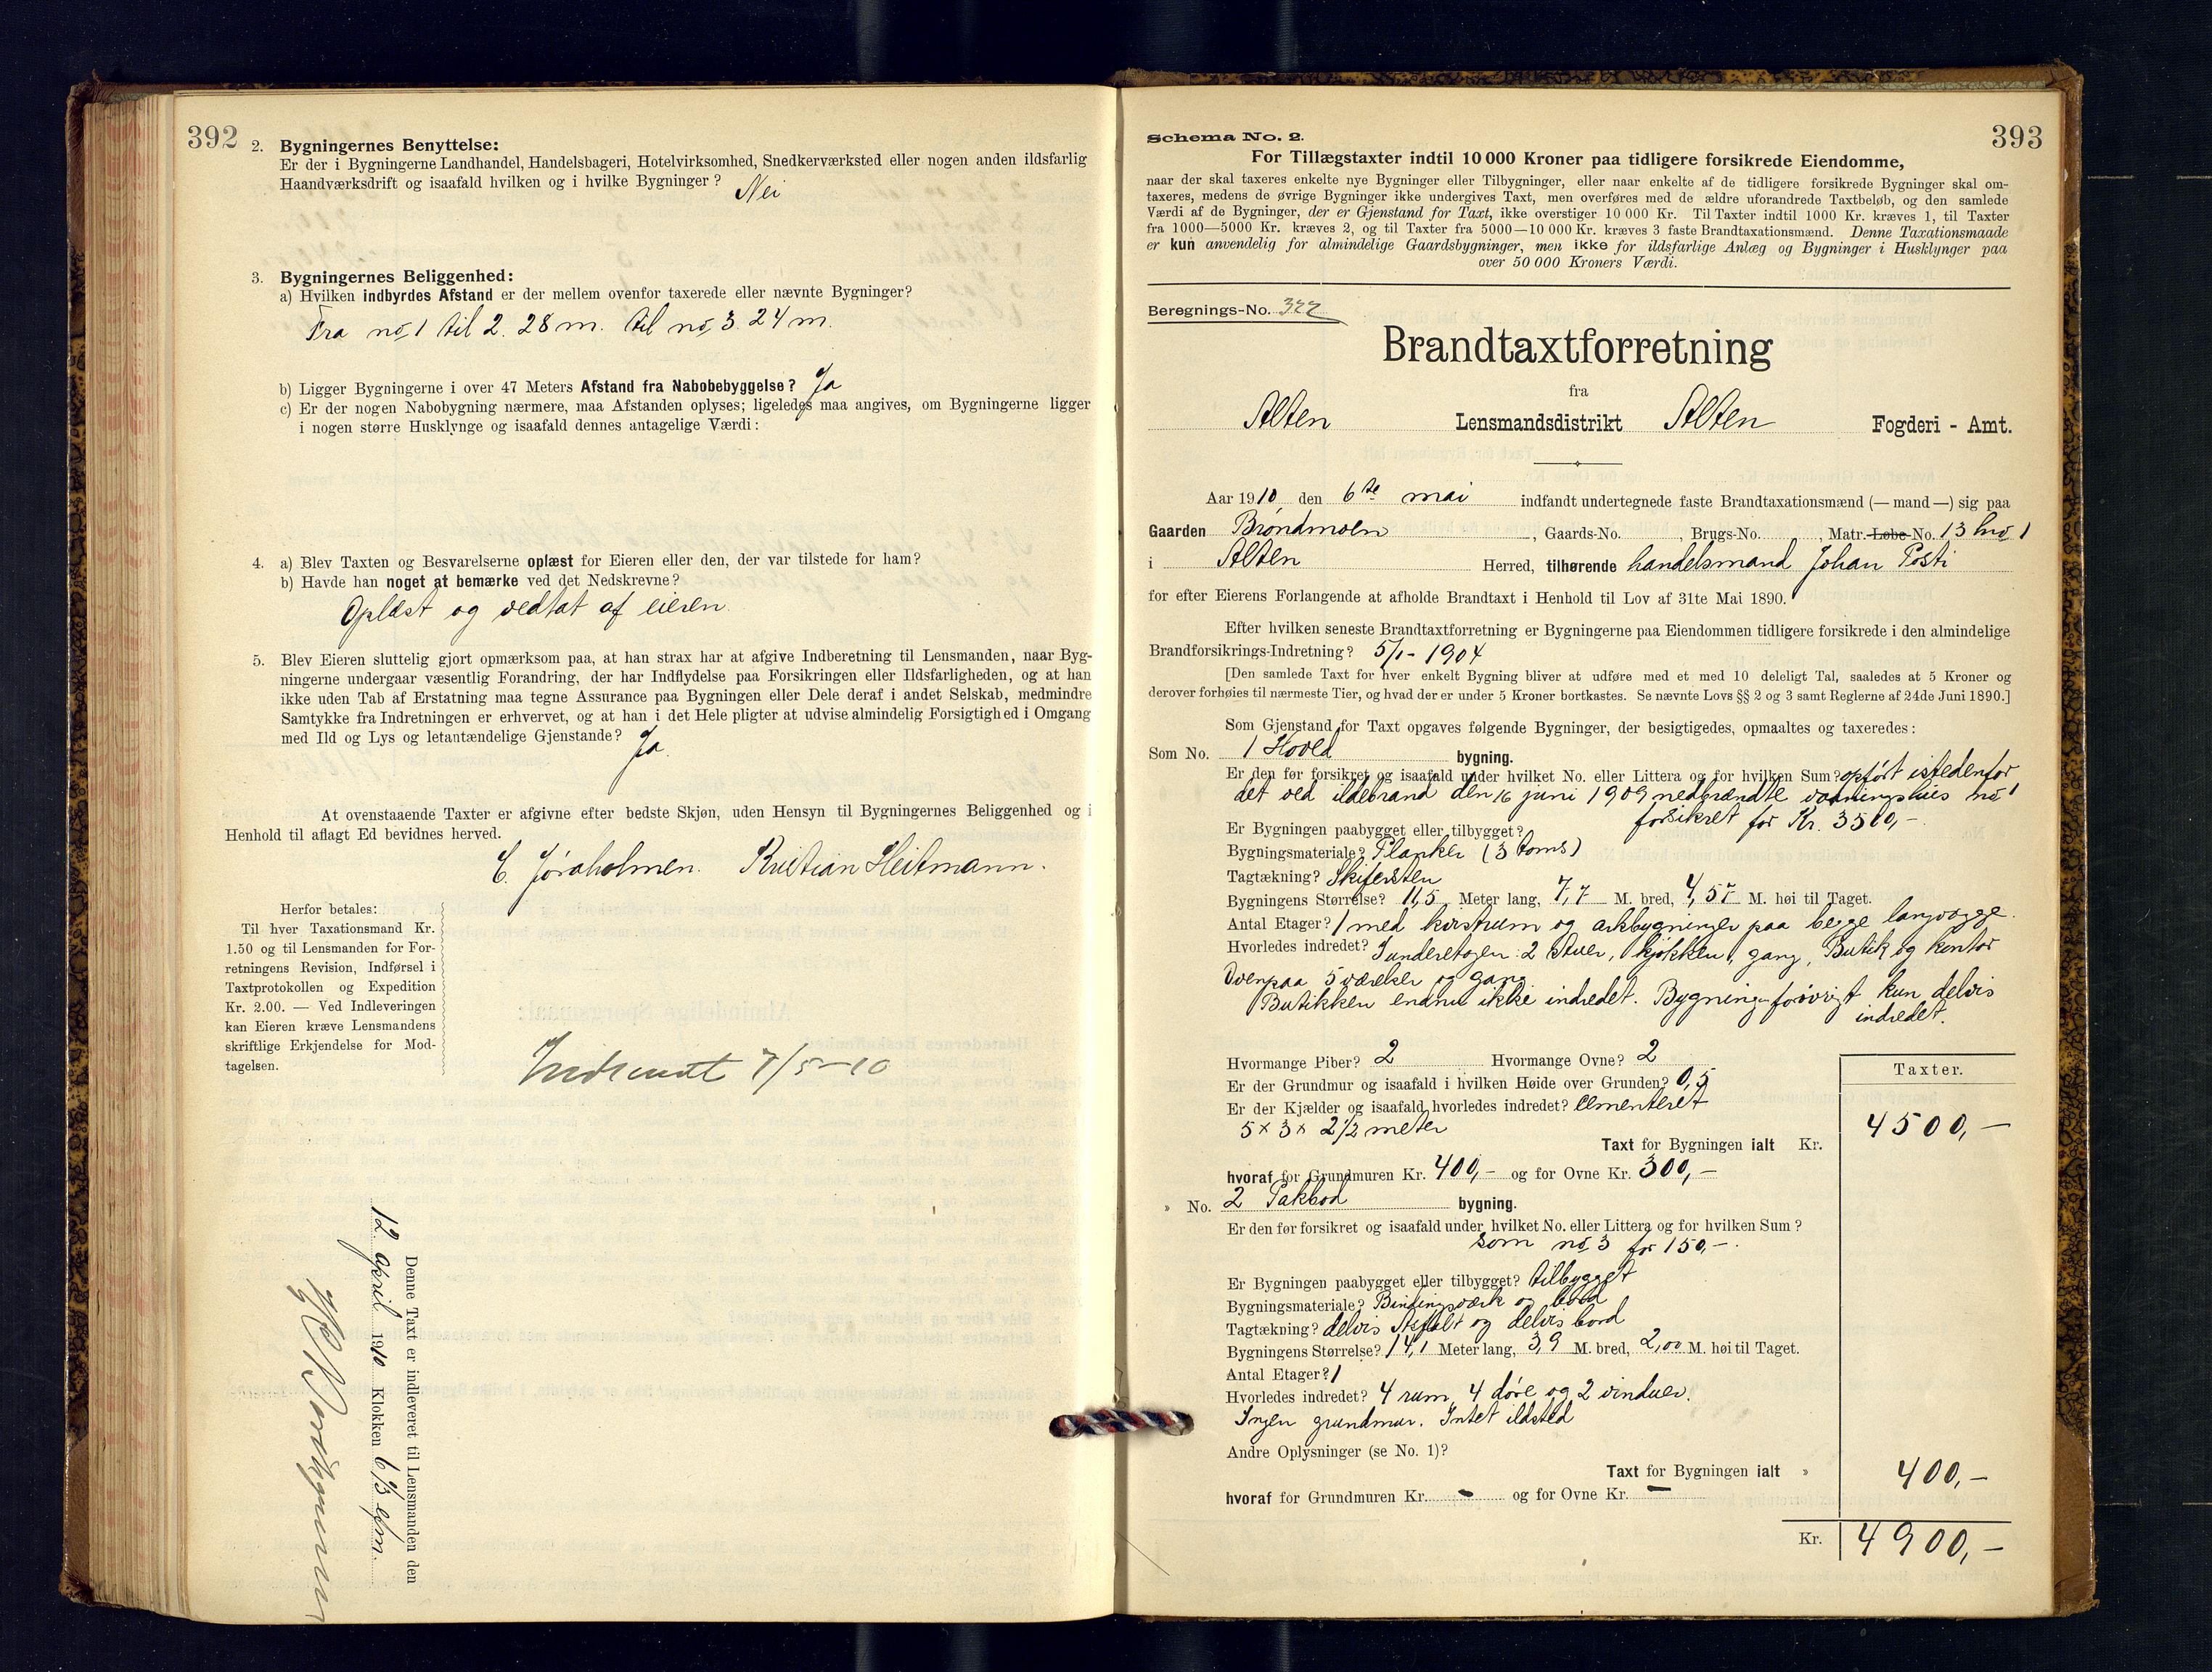 392
2. Bygningernes Benyttelse:
Er der i Bygningerne Landhandel, Handelsbageri, Hotelvirksomhed, Snedkerværksted eller nogen anden ildsfarlig
Haandværksdrift og isaafald hvilken og i hvilke Bygninger? Nei
3. Bygningernes Beliggenhed:
a) Hvilken indbyrdes Afstand er der mellem ovenfor taxerede eller nævnte Bygninger?
Fra no 1 til 2. 28 m. til no 3. 24 m.
b) Ligger Bygningerne i over 47 Meters Afstand fra Nabobebyggelse? Ja
c) Er der nogen Nabobygning nærmere, maa Afstanden oplyses; ligeledes maa angives, om Bygningerne ligger
i nogen større Husklynge og isaafald dennes antagelige Værdi:
4. a) Blev Taxten og Besvarelserne oplæst for Eieren eller den, der var tilstede for ham?
b) Havde han noget at bemærke ved det Nedskrevne?
Oplæst og vedtat af eieren.
5. Blev Eieren sluttelig gjort opmærksom paa, at han strax har at afgive Indberetning til Lensmanden, naar Byg-
ningerne undergaar væsentlig Forandring, der har Indflydelse paa Forsikringen eller Ildsfarligheden, og at han
ikke uden Tab af Erstatning maa tegne Assurance paa Bygningen eller Dele deraf i andet Selskab, medmindre
Samtykke fra Indretningen er erhvervet, og at han i det Hele pligter at udvise almindelig Forsigtighed i Omgang
med Ild og Lys og letantændelige Gjenstande? Ja.
At ovenstaaende Taxter er afgivne efter bedste Skjøn, uden Hensyn til Bygningernes Beliggenhed og i
Henhold til aflagt Ed bevidnes herved.
C. Jøraholmen. Kristian Heitmann.
Herfor betales:
Til hver Taxationsmand Kr.
1.50 og til Lensmanden for For-
retningens Revision, Indførsel i
Taxtprotokollen og Expedition
Kr. 2.00. — Ved Indleveringen
kan Eieren kræve Lensmandens
skriftlige Erkjendelse for Mod-
tagelsen.
Indsendt 7/5-10
Denne Taxt er indleveret til Lensmanden den
12 april 1910 Klokken 6 1/3 efm.
393
Schema No. 2.
For Tillægstaxter indtil 10 000 Kroner paa tidligere forsikrede Eiendomme,
naar der skal taxeres enkelte nye Bygninger eller Tilbygninger, eller naar enkelte af de tidligere forsikrede Bygninger skal om-
taxeres, medens de øvrige Bygninger ikke undergives Taxt, men overføres med de ældre uforandrede Taxtbeløb, og den samlede
Værdi af de Bygninger, der er Gjenstand for Taxt, ikke overstiger 10 000 Kr. Til Taxter indtil 1000 Kr. kræves 1, til Taxter
fra 1000—5000 Kr. kræves 2, og til Taxter fra 5000—10 000 Kr. kræves 3 faste Brandtaxationsmænd. Denne Taxationsmaade
er kun anvendelig for almindelige Gaardsbygninger, men ikke for ildsfarlige Anlæg og Bygninger i Husklynger paa
over 50 000 Kroners Værdi.
Beregnings-No. 322
Brandtaxtforretning
fra
Alten Lensmandsdistrikt Alten Fogderi - Amt.
Aar 1910 den 6te mai indfandt undertegnede faste Brandtaxationsmænd (— mand —) sig paa
Gaarden Brøndmoen, Gaards-No. , Brugs-No. , Matr.-Løbe-No. 13 bno 1
i Alten Herred, tilhørende handelsmand Johan Posti
for efter Eierens Forlangende at afholde Brandtaxt i Henhold til Lov af 31te Mai 1890.
Efter hvilken seneste Brandtaxtforretning er Bygningerne paa Eiendommen tidligere forsikrede i den almindelige
Brandforsikrings-Indretning? 5/1-1904
[Den samlede Taxt for hver enkelt Bygning bliver at udføre med et med 10 deleligt Tal, saaledes at 5 Kroner og
derover forhøies til nærmeste Tier, og hvad der er under 5 Kroner bortkastes. Se nævnte Lovs §§ 2 og 3 samt Reglerne af 24de Juni 1890.]
Som Gjenstand for Taxt opgaves følgende Bygninger, der besigtigedes, opmaaltes og taxeredes:
Som No. 1 Hoved bygning.
Er den før forsikret og isaafald under hvilket No. eller Littera og for hvilken Sum? opført istedenfor
det ved ildebrand den 16 juni 1909 nedbrændte vaaningshus no 1
forsikret for Kr. 3500,-
Er Bygningen paabygget eller tilbygget?
Bygningsmateriale? Planker (3 toms)
Tagtækning? Skifersten
Bygningens Størrelse? 11,5 Meter lang, 7,7 M. bred, 4,57 M. høi til Taget.
Antal Etager? 1 med kvistrum og arkbygninger paa begge langvægge.
Hvorledes indredet? I underetagen: 2 stuer, 1 kjøkken, gang, Butik og kontor
Ovenpaa 5 værelser og gang
Butikken endnu ikke indredet. Bygningen forøvrigt kun delvis
indredet.
Hvormange Piber? 2 Hvormange Ovne? 2
Er der Grundmur og isaafald i hvilken Høide over Grunden? 0,5
Er der Kjælder og isaafald hvorledes indredet? cementeret
5 x 3 x 2 1/2 meter
Taxter.
Taxt for Bygningen ialt Kr. 4500,-
hvoraf for Grundmuren Kr. 400,- og for Ovne Kr. 300,-
» No. 2 Pakbod bygning.
Er den før forsikret og isaafald under hvilket No. eller Littera og for hvilken Sum?
som no 3 for 150,-.
Er Bygningen paabygget eller tilbygget? tilbygget
Bygningsmateriale? Bindingsværk og bord
Tagtækning? delvis Asfalt og delvis bord
Bygningens Størrelse? 14,1 Meter lang, 3,9 M. bred, 2,00 M. høi til Taget.
Antal Etager? 1
Hvorledes indredet? 4 rum, 4 døre og 2 vinduer.
Ingen grundmur. Intet ildsted
Andre Oplysninger (se No. 1)?
Taxt for Bygningen ialt » 400,-
hvoraf for Grundmuren Kr. - og for Ovne Kr. -
Kr. 4900,-